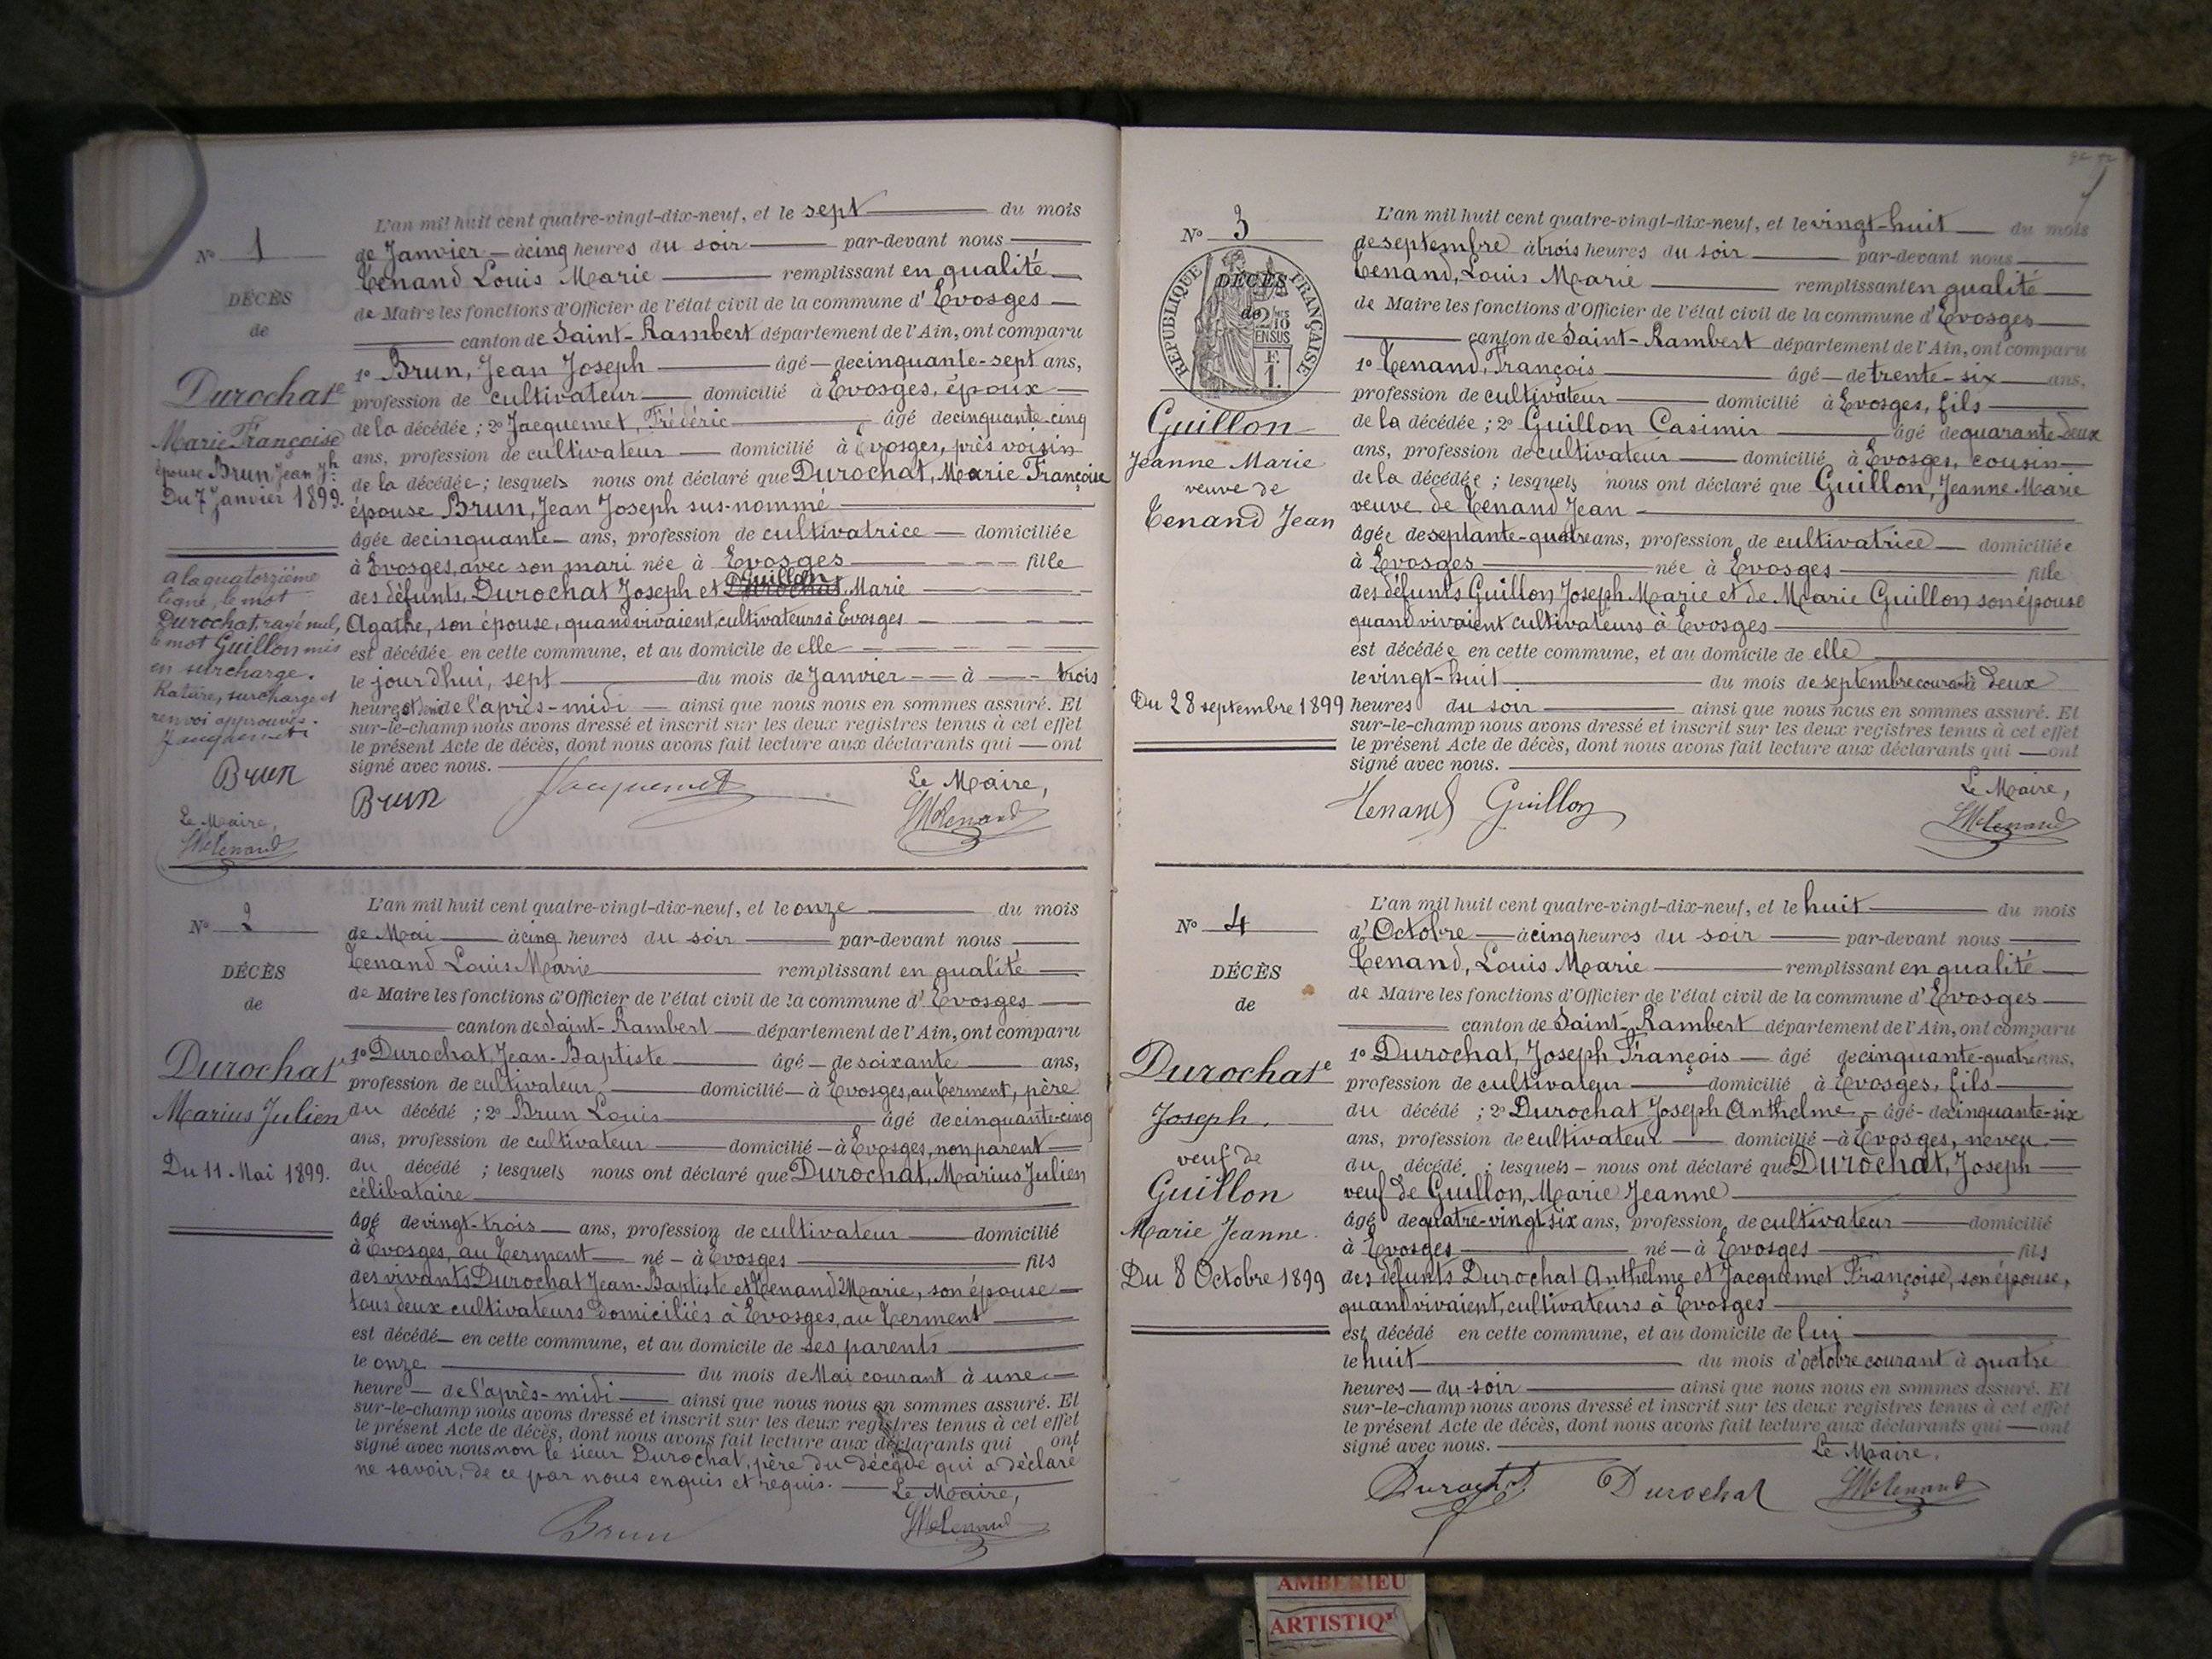 N° 1
DÉCÈS
de
Durochat
Marie Françoise
épouse Brun Jean Jh
Du 7 Janvier 1899.
à la quatorzième
ligne, le mot
Durochat rayé nul,
le mot Guillon mis
en surcharge.
Rature, surcharge et
renvoi approuvés.
Jacquemet
Brun
Le Maire,
LMTenand
L'an mil huit cent quatre-vingt-dix-neuf, et le sept du mois
de Janvier à cinq heures du soir par-devant nous
Tenand Louis Marie remplissant en qualité
de Maire les fonctions d'Officier de l'état civil de la commune d'Evosges
canton de Saint-Rambert département de l'Ain, ont comparu
1° Brun, Jean Joseph âgé de cinquante-sept ans,
profession de cultivateur domicilié à Evosges, époux
de la décédée; 2° Jacquemet, Frédéric âgé de cinquante-cinq
ans, profession de cultivateur domicilié à Evosges, près voisin
de la décédée; lesquels nous ont déclaré que Durochat, Marie Françoise
épouse Brun, Jean Joseph sus-nommé
âgée de cinquante ans, profession de cultivatrice domiciliée
à Evosges, avec son mari née à Evosges fille
des défunts, Durochat Joseph et Durochat Guillon Marie
Agathe, son épouse, quand vivaient, cultivateurs à Evosges
est décédée en cette commune, et au domicile de elle
le jourd'hui, sept du mois de Janvier à trois
heures de l'après-midi ainsi que nous nous en sommes assuré. Et
sur-le-champ nous avons dressé et inscrit sur les deux registres tenus à cet effet
le présent Acte de décès, dont nous avons fait lecture aux déclarants qui ont
signé avec nous.
Brun Jacquemet Le Maire,
LMTenand
N° 2
DÉCÈS
de
Durochat
Marius Julien
Du 11 Mai 1899.
L'an mil huit cent quatre-vingt-dix-neuf, et le onze du mois
de Mai à cinq heures du soir par-devant nous
Tenand Louis Marie remplissant en qualité
de Maire les fonctions d'Officier de l'état civil de la commune d'Evosges
canton de Saint-Rambert département de l'Ain, ont comparu
1° Durochat, Jean-Baptiste âgé de soixante ans,
profession de cultivateur domicilié à Evosges, au Terment, père
du décédé; 2° Brun Louis âgé de cinquante-cinq
ans, profession de cultivateur domicilié à Evosges, non parent
du décédé; lesquels nous ont déclaré que Durochat, Marius Julien
célibataire
âgé de vingt-trois ans, profession de cultivateur domicilié
à Evosges, au Terment né à Evosges fils
des vivants Durochat Jean-Baptiste et Tenand Marie, son épouse
tous deux cultivateurs domiciliés à Evosges, au Terment
est décédé en cette commune, et au domicile de ses parents
le onze du mois de Mai courant à une
heure de l'après-midi ainsi que nous nous en sommes assuré. Et
sur-le-champ nous avons dressé et inscrit sur les deux registres tenus à cet effet
le présent Acte de décès, dont nous avons fait lecture aux déclarants qui ont
signé avec nous non le sieur Durochat, père du décédé qui a déclaré
ne savoir, de ce par nous enquis et requis. Le Maire,
Brun LMTenand
N° 3
RÉPUBLIQUE FRANÇAISE
DÉCÈS
de
2/10
EN SUS
F.
1.
Guillon
Jeanne Marie
veuve de
Tenand Jean
Du 28 septembre 1899
L'an mil huit cent quatre-vingt-dix-neuf, et le vingt-huit du mois
de septembre à trois heures du soir par-devant nous
Tenand, Louis Marie remplissant en qualité
de Maire les fonctions d'Officier de l'état civil de la commune d'Evosges
canton de Saint-Rambert département de l'Ain, ont comparu
1° Tenand, François âgé de trente-six ans,
profession de cultivateur domicilié à Evosges, fils
de la décédée; 2° Guillon Casimir âgé de quarante-deux
ans, profession de cultivateur domicilié à Evosges, cousin
de la décédée; lesquels nous ont déclaré que Guillon, Jeanne Marie
veuve de Tenand Jean
âgée de septante-quatre ans, profession de cultivatrice domiciliée
à Evosges née à Evosges fille
des défunts Guillon Joseph Marie et de Marie Guillon son épouse
quand vivaient cultivateurs à Evosges
est décédée en cette commune, et au domicile de elle
le vingt-huit du mois de septembre courant à deux
heures du soir ainsi que nous nous en sommes assuré. Et
sur-le-champ nous avons dressé et inscrit sur les deux registres tenus à cet effet
le présent Acte de décès, dont nous avons fait lecture aux déclarants qui ont
signé avec nous.
Le Maire,
Tenand Guillon LMTenand
N° 4
DÉCÈS
de
Durochat
Joseph.
veuf de
Guillon
Marie Jeanne.
Du 8 Octobre 1899
L'an mil huit cent quatre-vingt-dix-neuf, et le huit du mois
d'Octobre à cinq heures du soir par-devant nous
Tenand, Louis Marie remplissant en qualité
de Maire les fonctions d'Officier de l'état civil de la commune d'Evosges
canton de Saint-Rambert département de l'Ain, ont comparu
1° Durochat, Joseph François âgé de cinquante-quatre ans,
profession de cultivateur domicilié à Evosges, fils
du décédé; 2° Durochat Joseph Anthelme âgé de cinquante-six
ans, profession de cultivateur domicilié à Evosges, neveu
du décédé; lesquels nous ont déclaré que Durochat, Joseph
veuf de Guillon, Marie Jeanne
âgé de quatre-vingt-six ans, profession de cultivateur domicilié
à Evosges né à Evosges fils
des défunts Durochat Anthelme et Jacquemet Françoise, son épouse,
quand vivaient, cultivateurs à Evosges
est décédé en cette commune, et au domicile de lui
le huit du mois d'octobre courant à quatre
heures du soir ainsi que nous nous en sommes assuré. Et
sur-le-champ nous avons dressé et inscrit sur les deux registres tenus à cet effet
le présent Acte de décès, dont nous avons fait lecture aux déclarants qui ont
signé avec nous. Le Maire.
Durochat Durochat LMTenand
AMBERIEU
ARTISTIQ